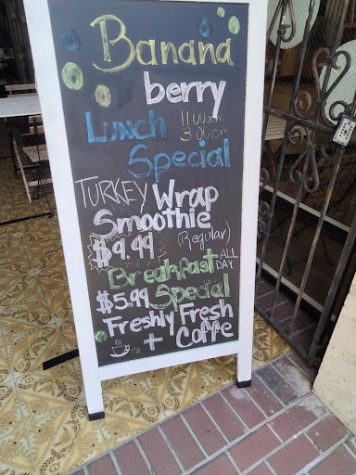 Banana
berry
Lunch 11:00am
3:00pm
Special
TURKEY Wrap
Smoothie
$9.99 (Regular)
Breakfast ALL
DAY
$5.99 Special
Freshly Fresh
+ Caffe